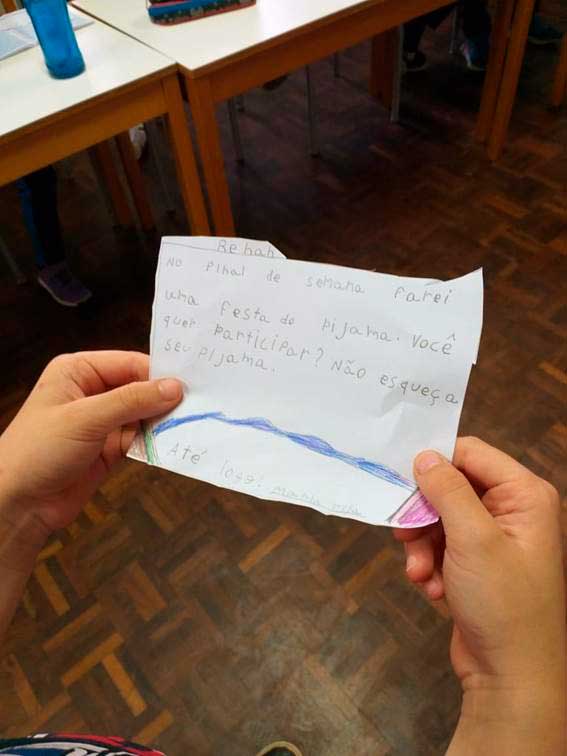 Rehan
NO FINal de semana Farei
uma Festa do pijama. Você
quer participar? Não esqueça
seu PIjama.
Até logo!